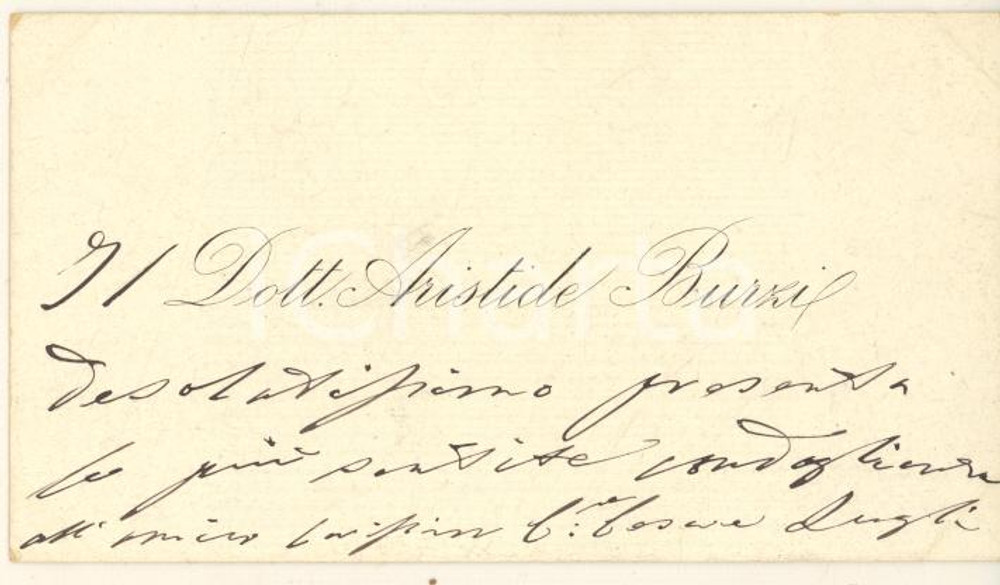 Il Dott. Aristide Burzi
desolatissimo presenta
le più sentite condoglianze
all'amico Cesare